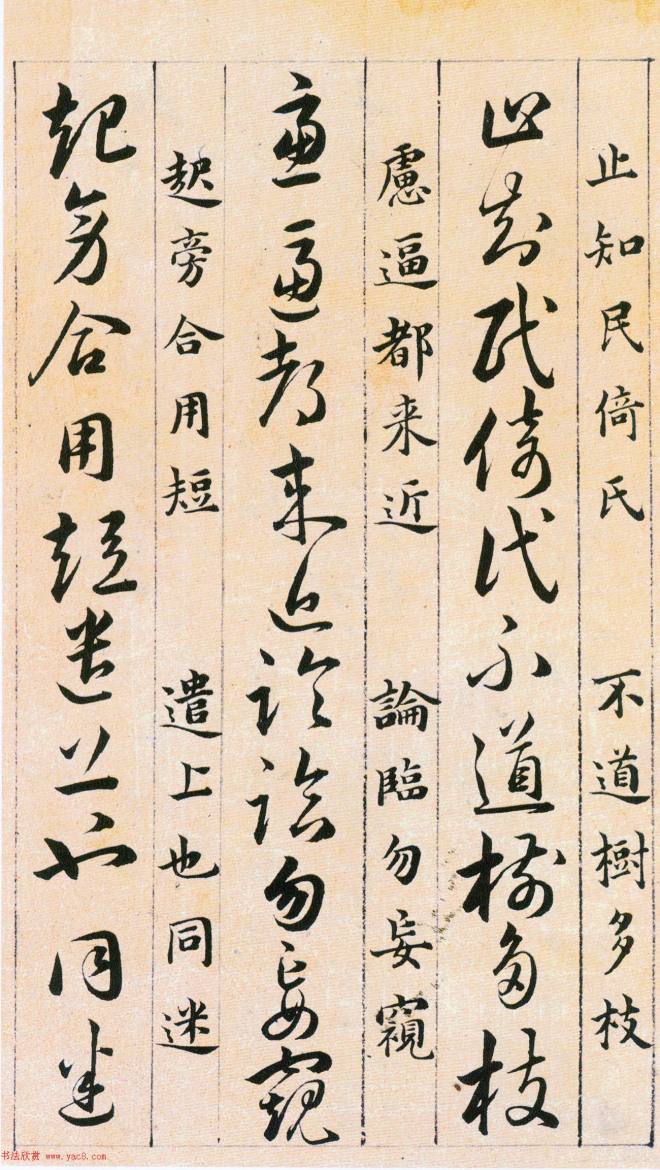 止知民倚氏 不道樹多枝
止知民倚氏不道樹多枝
慮逼都来近 論臨勿妄窺
慮逼都来近論臨勿妄窺
起旁合用短 遣上也同迷
起旁合用短遣上也同迷
书法欣赏 www.yac8.com